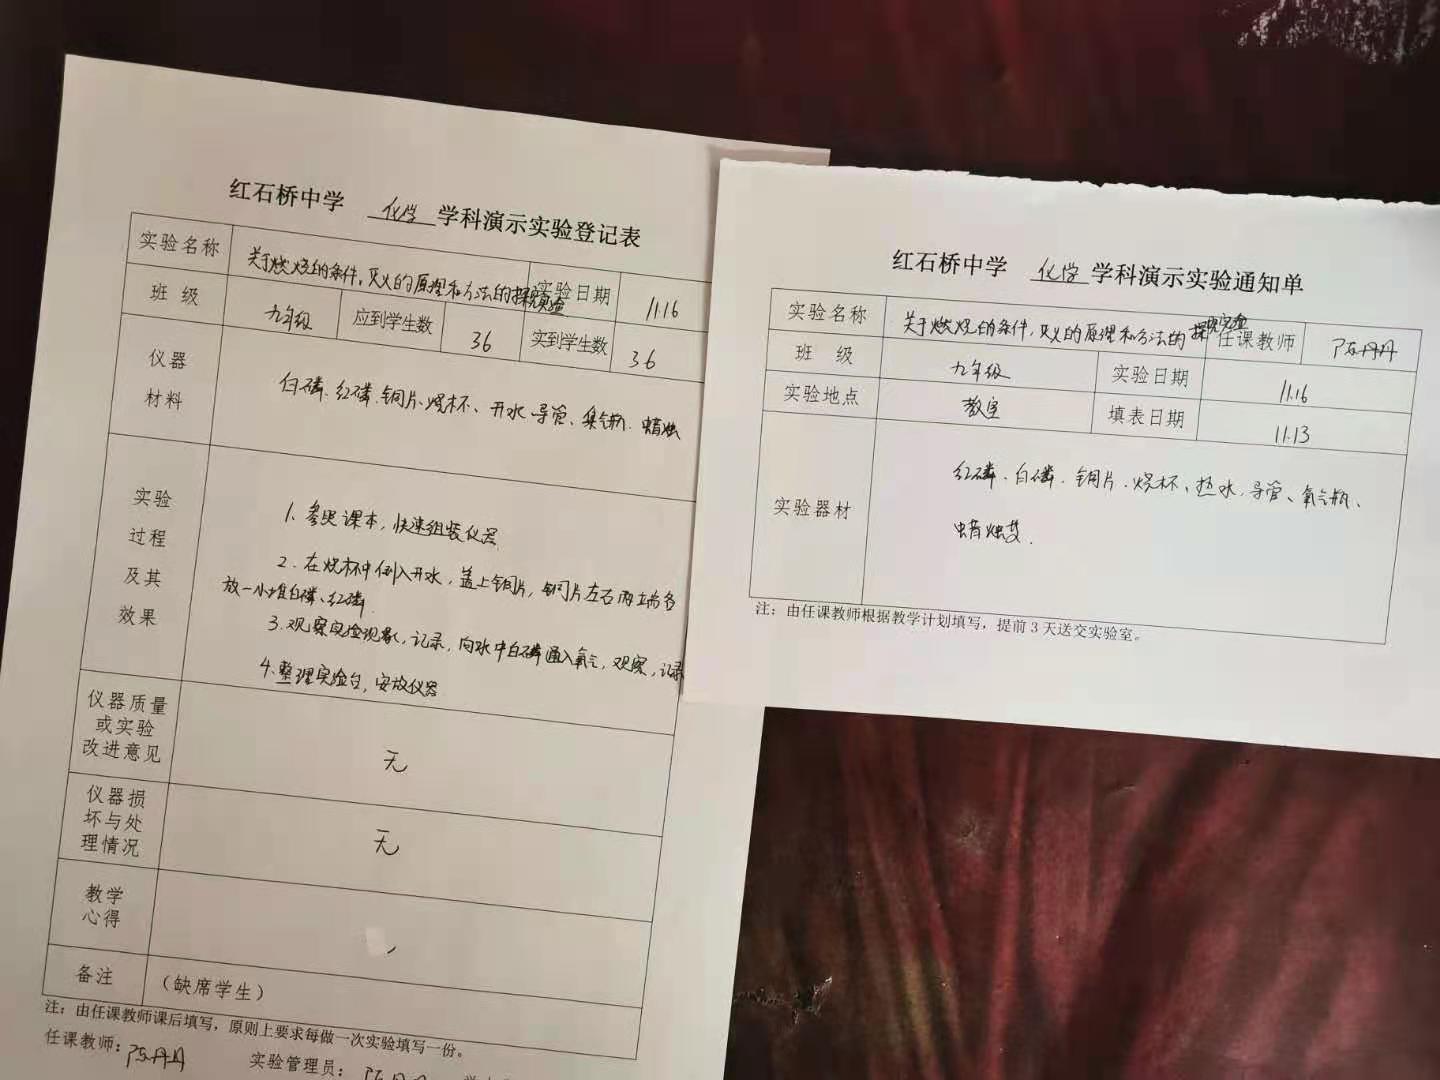 红石桥中学 化学 学科演示实验登记表
实验名称 关于燃烧的条件，灭火的原理和方法的探究实验 实验日期 11.16
班 级 九年级 应到学生数 36 实到学生数 36
仪器
材料
白磷、红磷、铜片、烧杯、开水、导管、集气瓶、蜡烛
实验
过程
及其
效果
1、参照课本，快速组装仪器
2．在烧杯中倒入开水，盖上铜片，铜片左右两端各
放一小堆白磷、红磷．
3．观察实验现象，记录，向水中白磷通入氧气，观察，记录
4．整理实验台，安放仪器
仪器质量
或实验
改进意见
无
仪器损
坏与处
理情况
无
教学
心得
备注 （缺席学生）
注：由任课教师课后填写，原则上要求每做一次实验填写一份。
任课教师：陈丹丹 实验管理员：陈丹
红石桥中学 化学 学科演示实验通知单
实验名称 关于燃烧的条件，灭火的原理和方法的探究实验 任课教师 陈丹丹
班 级 九年级 实验日期 11.16
实验地点 教室 填表日期 11.13
实验器材
红磷、白磷、铜片、烧杯、热水、导管、氧气瓶、
蜡烛
注：由任课教师根据教学计划填写，提前3天送交实验室。